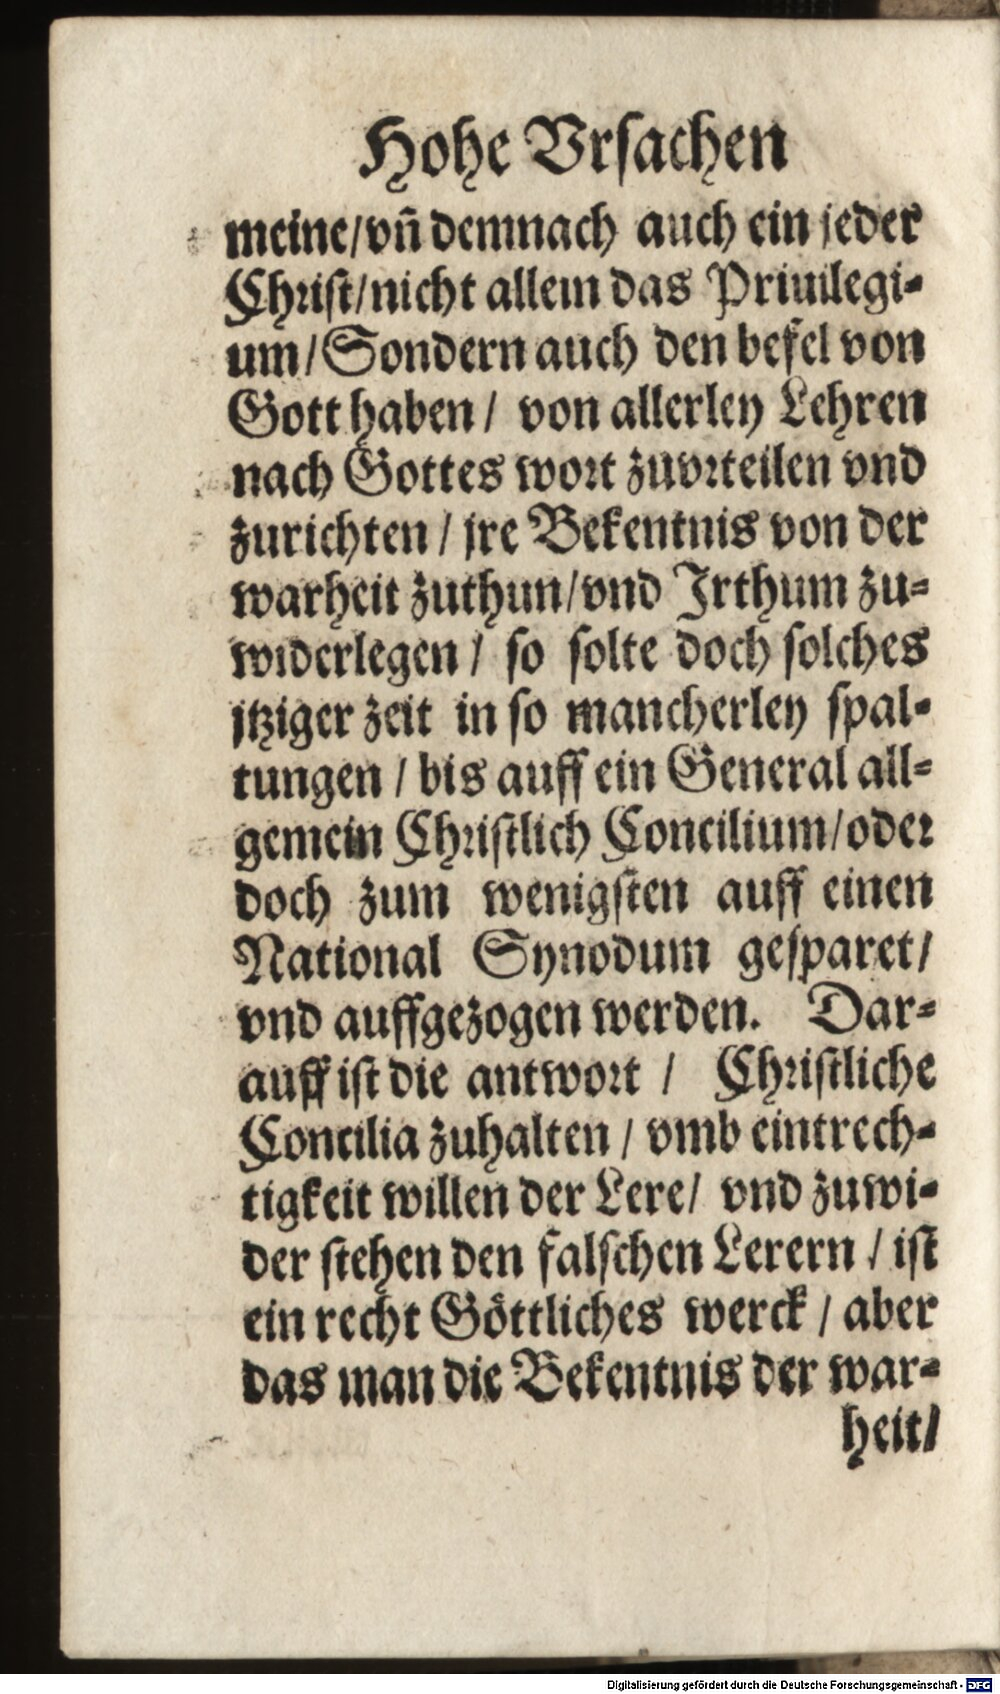 Hohe Vrsachen
meine/vñ demnach auch ein jeder
Christ/nicht allein das Priuilegi-
um/Sondern auch den befel von
Gott haben/ von allerley Lehren
nach Gottes wort zuvrteilen vnd
zurichten/ jre Bekentnis von der
warheit zuthun/vnd Irthum zu-
widerlegen/ so solte doch solches
jtziger zeit in so mancherley spal-
tungen/ bis auff ein General all-
gemein Christlich Concilium/oder
doch zum wenigsten auff einen
National Synodum gesparet/
vnd auffgezogen werden. Dar-
auff ist die antwort/ Christliche
Concilia zuhalten/ vmb eintrech-
tigkeit willen der Lere/ vnd zuwi-
der stehen den falschen Lerern/ ist
ein recht Göttliches werck/ aber
das man die Bekentnis der war-
heit/
Digitalisierung gefördert durch die Deutsche Forschungsgemeinschaft - DFG